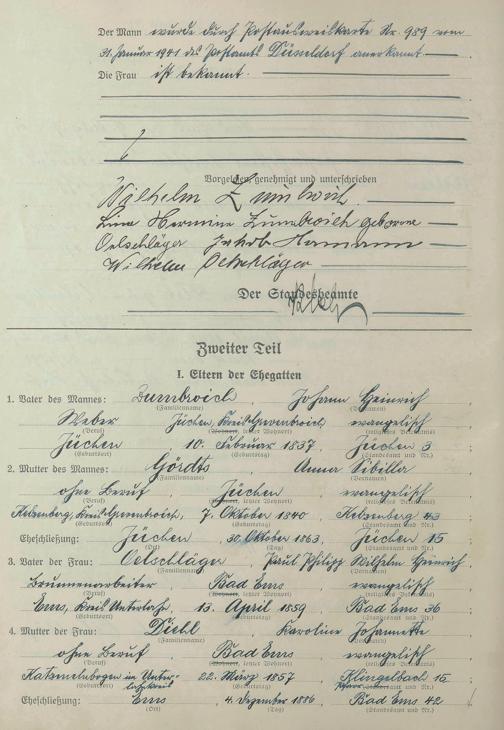 Der Mann wurde durch Postausweiskarte Nr. 989 vom
31. Januar 1941 des Postamts Düsseldorf anerkannt.
Die Frau ist bekannt.
Vorgelesen, genehmigt und unterschrieben
Wilhelm Zumbroich.
Lina Hermine Zumbroich geborene
Oelschläger Jakob Hamann
Wilhelm Oelschläger
Der Standesbeamte
Zweiter Teil
I. Eltern der Ehegatten
1. Vater des Mannes: Zumbroich, Johann Heinrich
(Familienname) (Vornamen)
Weber Jüchen, Kreis Grevenbroich evangelisch
(Beruf) (Wohnort, letzter Wohnort) (religiöses Bekenntnis)
Jüchen 10. Februar 1837. Jüchen 3
(Geburtsort) (Geburtstag) (Standesamt und Nr.)
2. Mutter des Mannes: Gördts Anna Sibilla
(Familienname) (Vornamen)
ohne Beruf, Jüchen evangelisch
(Beruf) (Wohnort, letzter Wohnort) (religiöses Bekenntnis)
Kelzenberg, Kreis Grevenbroich, 7. Oktober 1840 Kelzenberg 43
(Geburtsort) (Geburtstag) (Standesamt und Nr.)
Eheschließung: Jüchen 30. Oktober 1863, Jüchen 15
(Ort) (Tag) (Standesamt und Nr.)
3. Vater der Frau: Oelschläger, Karl Philipp Wilhelm Heinrich
(Familienname) (Vornamen)
Brunnenarbeiter Bad Ems evangelisch
(Beruf) (Wohnort, letzter Wohnort) (religiöses Bekenntnis)
Ems, Kreis Unterlahn, 13. April 1859 Bad Ems 36
(Geburtsort) (Geburtstag) (Standesamt und Nr.)
4. Mutter der Frau: Diehl Karoline Johannette
(Familienname) (Vornamen)
ohne Beruf Bad Ems evangelisch
(Beruf) (Wohnort, letzter Wohnort) (religiöses Bekenntnis)
Katzenelnbogen im Unter- 22. März 1857 Klingelbach 15
lahnkreis (Geburtstag) Pfarr
Eheschließung: Ems 4. Dezember 1886, Bad Ems 42
(Ort) (Tag) (Standesamt und Nr.)